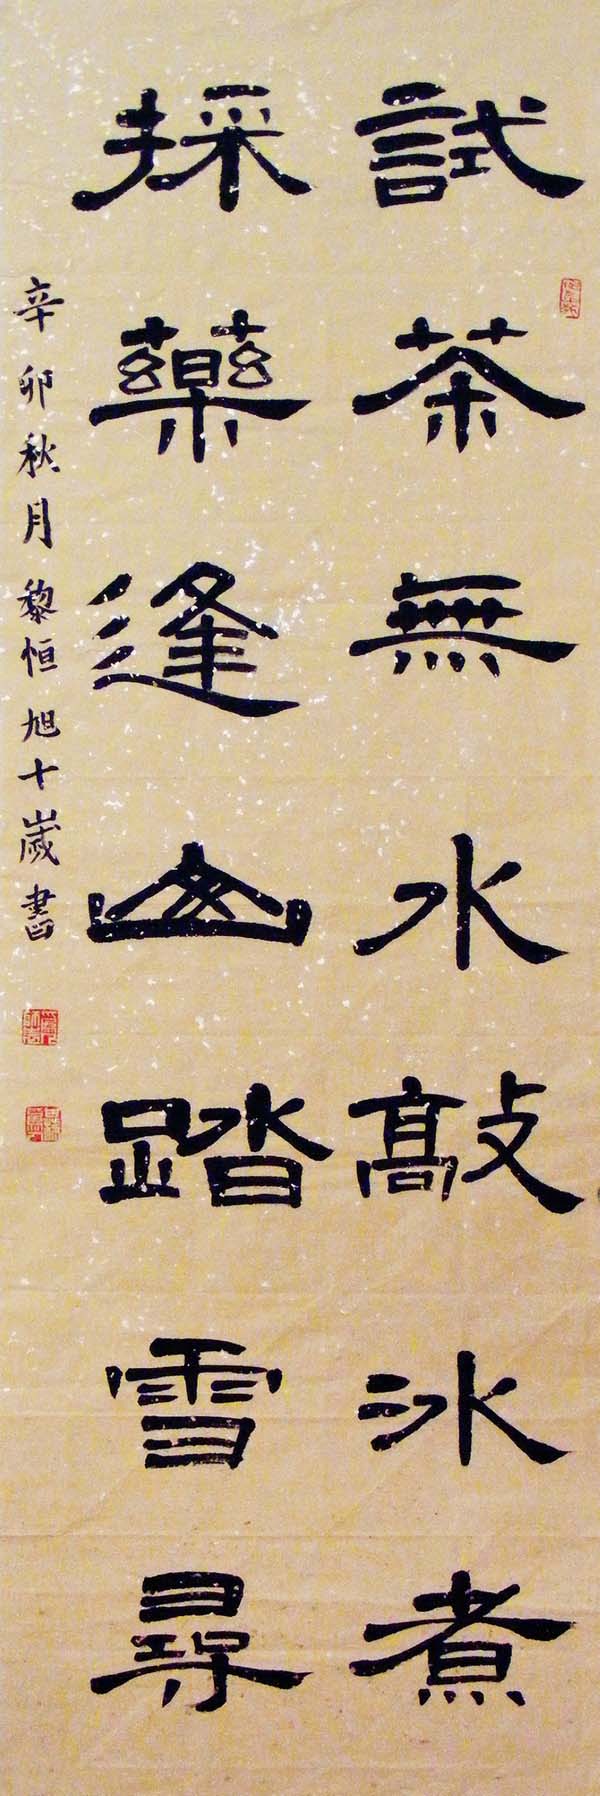 試茶無水敲冰煮
採藥逢山踏雪尋
辛卯秋月黎恒旭十歲書